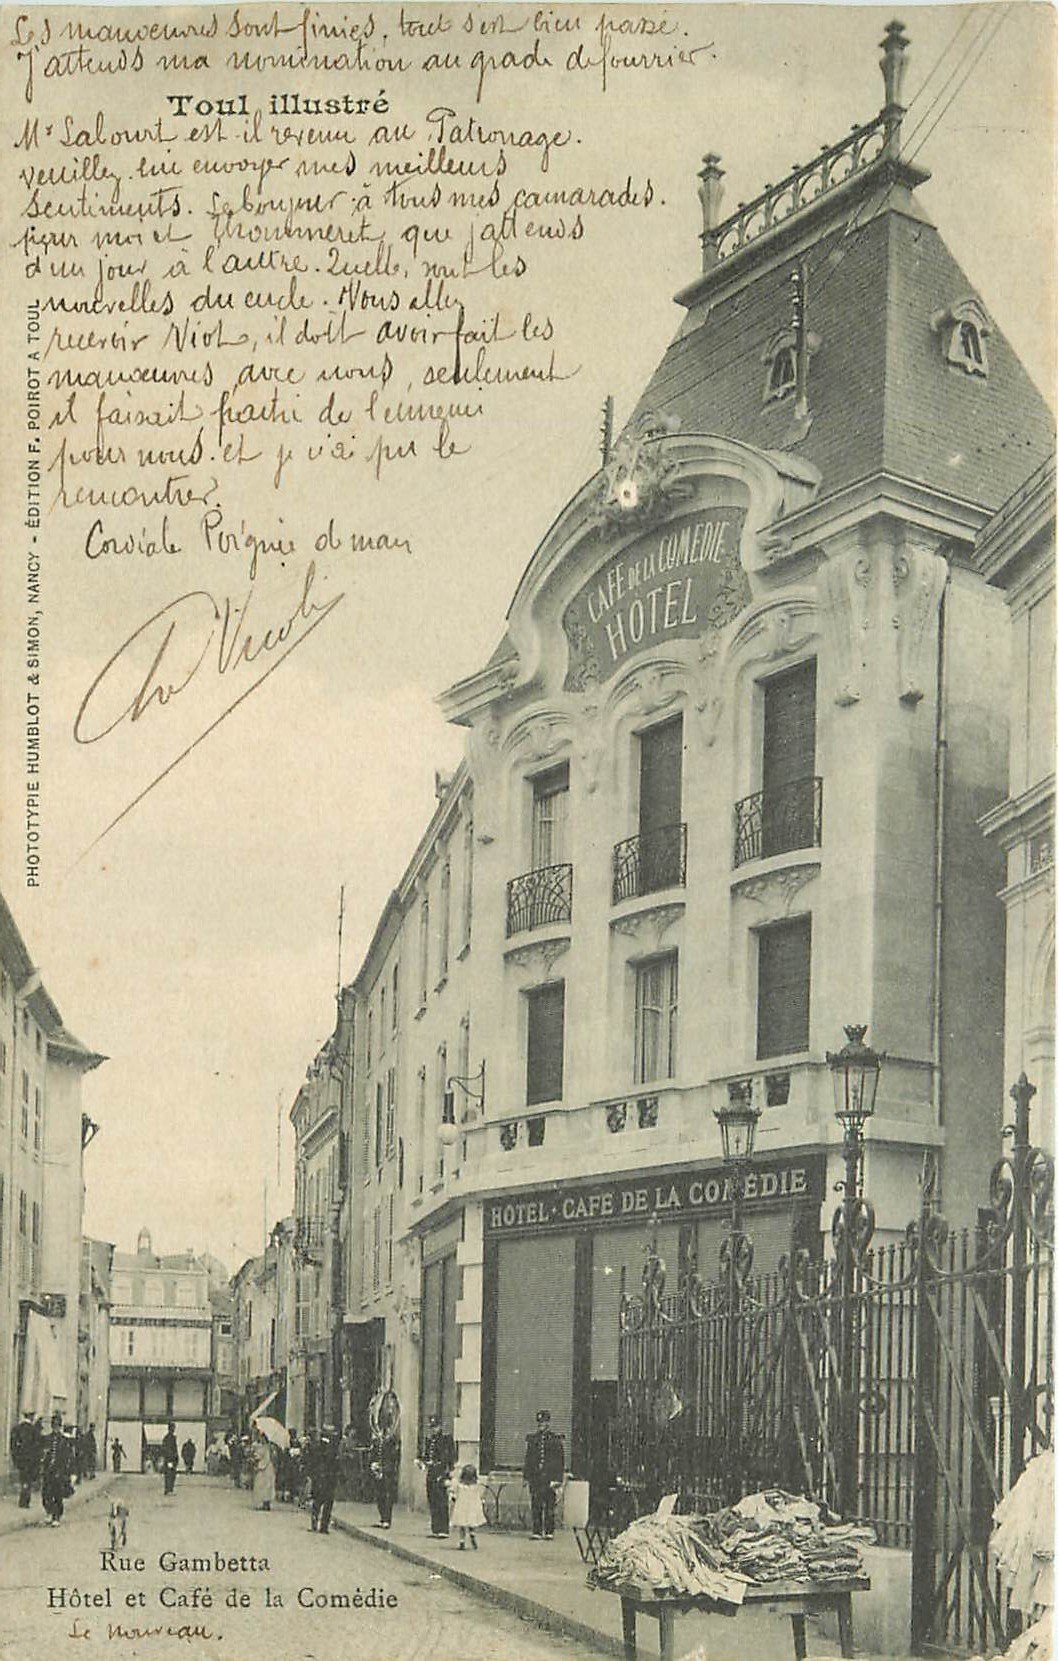 Les manœuvres sont finies, tout s'est bien passé.
J'attends ma nomination au grade de fourrier.
Toul illustré
Mr Labourt est-il revenu au Patronage.
veuillez lui envoyer mes meilleurs
sentiments. Le bonjour à tous mes camarades.
pour moi et Thommeret que j'attends
d'un jour à l'autre. Quelle, sont les
nouvelles du cercle. Vous allez
recevoir Viot, il doit avoir fait les
manœuvres avec nous, seulement
il faisait partie de l'ennemi
pour nous. et je n'ai pu le
rencontrer.
Cordiale Poignée de main
PHOTOTYPIE HUMBLOT & SIMON, NANCY - ÉDITION F. POIROT A TOUL
CAFÉ DE LA COMÉDIE
HOTEL
HOTEL - CAFÉ DE LA COMÉDIE
Rue Gambetta
Hôtel et Café de la Comédie
Le nouveau.